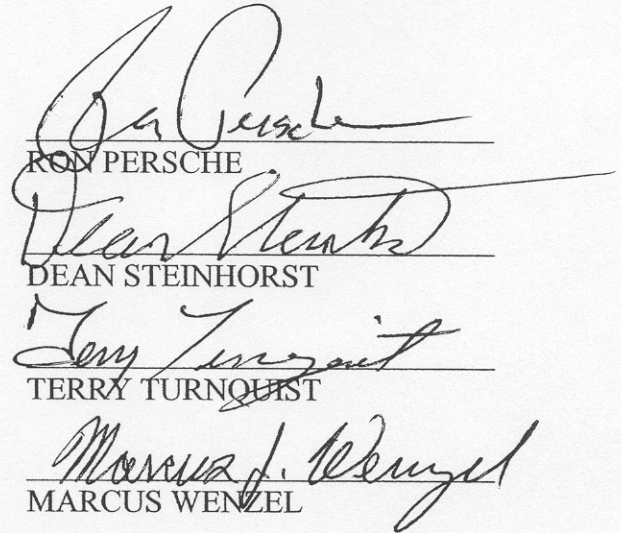 Ron Persche
RON PERSCHE
Dean Steinhorst
DEAN STEINHORST
Terry Turnquist
TERRY TURNQUIST
Marcus J. Wenzel
MARCUS WENZEL